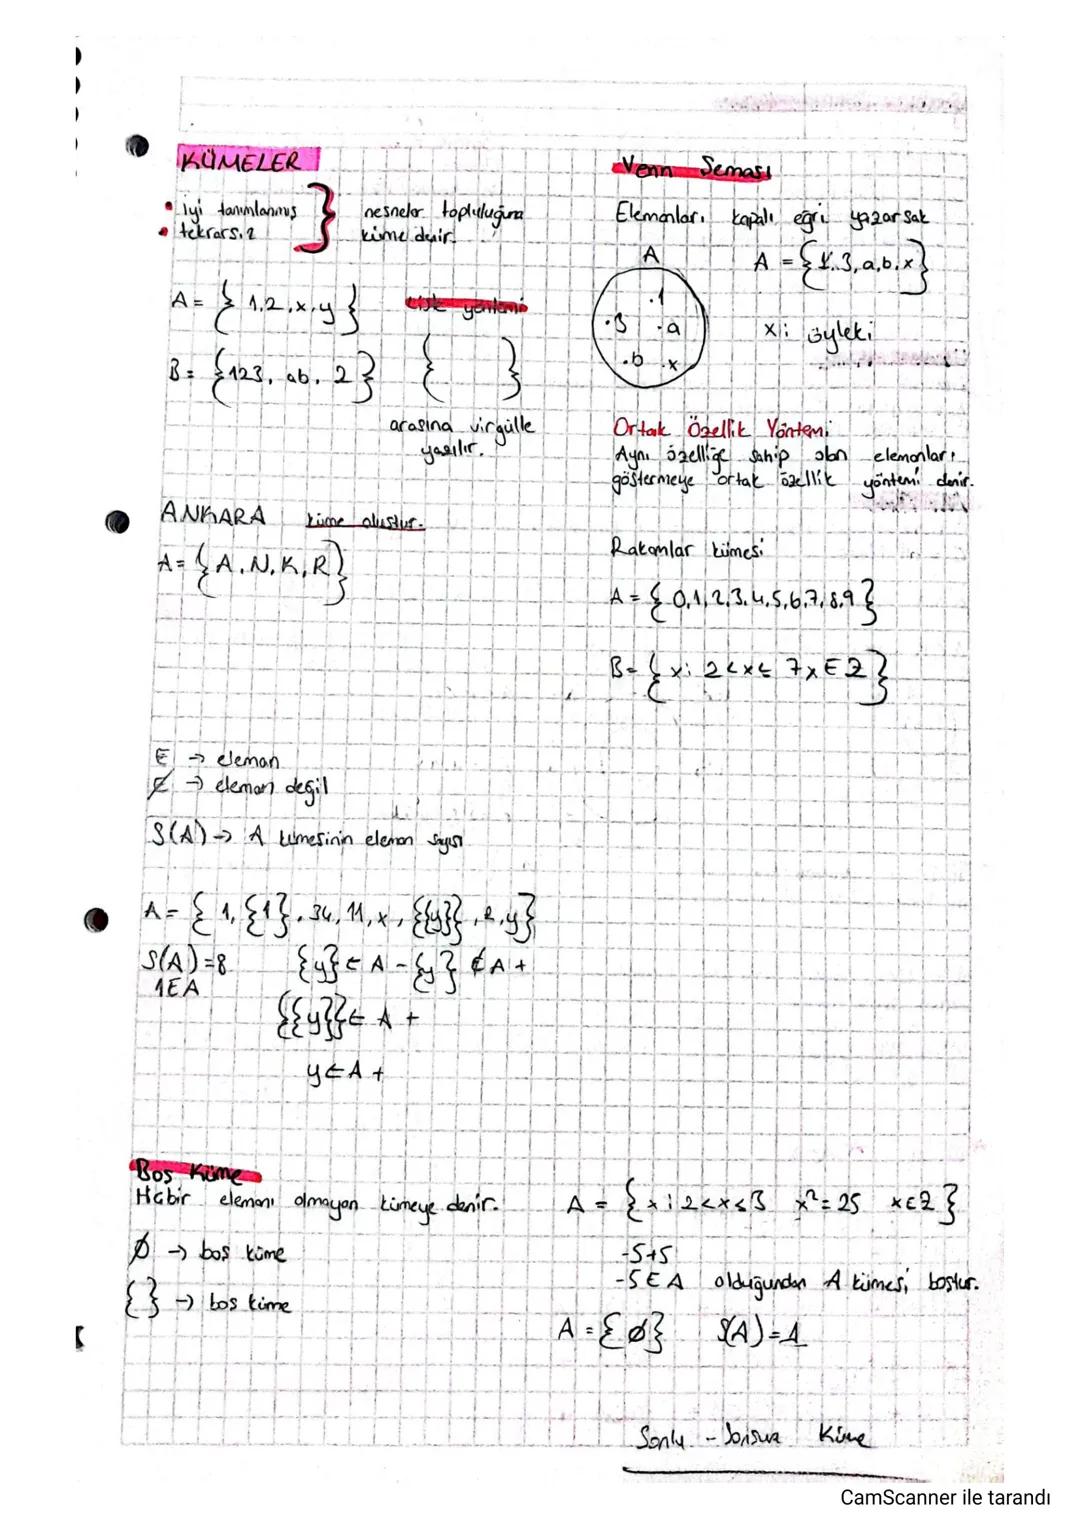 KÜMELER
• iyi tanımlanmış
• tekrarsız
nesneler topluluğuna
küme denir.
A = { 1,2,x,y }
Liste yöntemi
B = {123, ab, 2}
{ }
arasına virgülle
yazılır.
ANKARA küme oluştur.
A = {A,N,K,R}
∈ → eleman
∉ → eleman değil
S(A) → A kümesinin eleman sayısı
A = { 1, {1}, 34, 11, x, {{y}}, 2, y}
S(A)=8 {y} ∈ A - {y} ∉ A +
1∈A
{{y}} ∈ A +
y ∈ A +
Boş Küme
Hiçbir elemanı olmayan kümeye denir.
∅ → boş küme
{ } → boş küme
Venn Şeması
Elemanları kapalı eğri yazarsak
A
A = {1,3,a,b,x}
.1
.3 .a
.b .x
x: öyleki
Ortak Özellik Yöntemi
Aynı özelliğe sahip olan elemanları
göstermeye ortak özellik yöntemi denir.
Rakamlar kümesi
A = { 0,1,2,3,4,5,6,7,8,9 }
B = { x: 2<x≤ 7 x∈Z }
A = { x: 2<x≤3 x²=25 x∈Z }
-5+5
-5∈A olduğundan A kümesi boştur.
A = {∅} S(A)=1
Sonlu - Sonsuz Küme
CamScanner ile tarandı